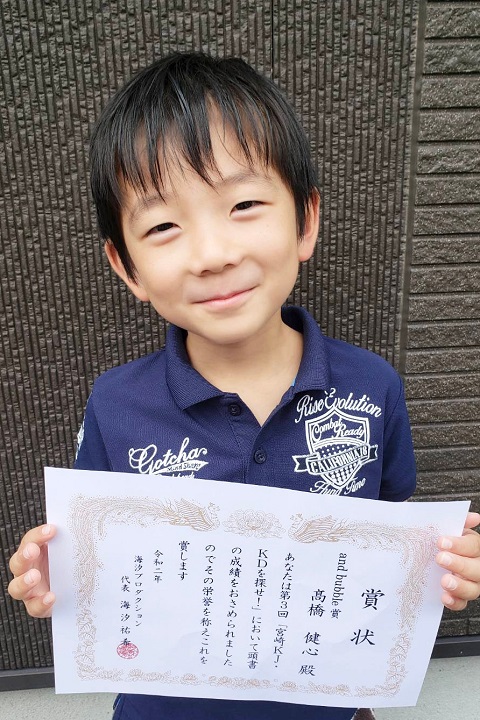 Rise Evolution
Combat
Ready
CALIFORNIA 78
Gotcha
賞状
and bubble賞
高橋 健心 殿
あなたは第3回「宮崎KJ・
KDを探せ！」において頭書
の成績をおさめられました
のでその栄誉を称えこれを
賞します
令和二年
海汐プロダクション
代表 海汐 祐希